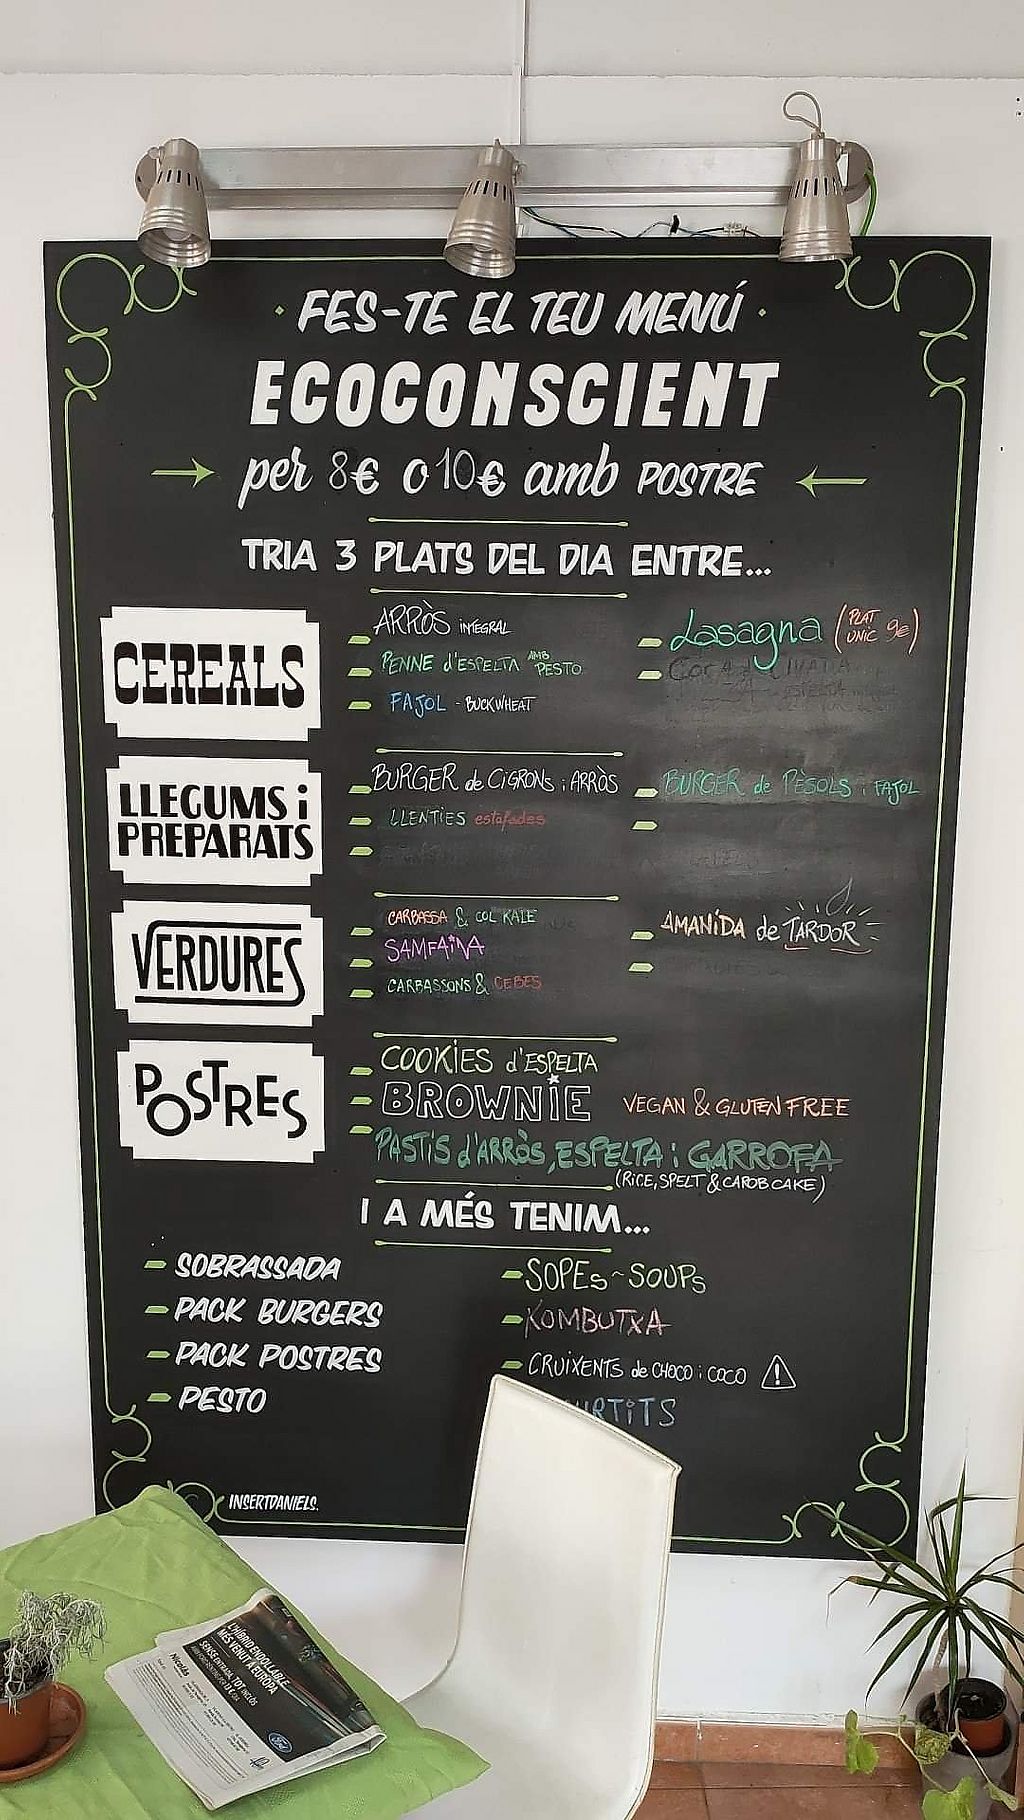 · FES-TE EL TEU MENÚ ·
ECOCONSCIENT
per 8€ o 10€ amb POSTRE
TRIA 3 PLATS DEL DIA ENTRE...
CEREALS
ARRÒS INTEGRAL
PENNE d'ESPELTA AMB PESTO
FAJOL - BUCKWHEAT
Lasagna (PLAT UNIC 9€)
LLEGUMS i
PREPARATS
BURGER de CIGRONS i ARRÒS
LLENTIES estofades
BURGER de PÈSOLS i FAJOL
VERDURES
CARBASSA & COL KALE
SAMFAINA
CARBASSONS & CEBES
AMANIDA de TARDOR
POSTRES
COOKIES d'ESPELTA
BROWNIE VEGAN & GLUTEN FREE
PASTIS d'ARRÒS, ESPELTA i GARROFA
(RICE, SPELT & CAROB CAKE)
I A MÉS TENIM...
SOBRASSADA
PACK BURGERS
PACK POSTRES
PESTO
SOPES ~ SOUPS
KOMBUTXA
CRUIXENTS de CHOCO i COCO
INSERTDANIELS.
L'HÍBRID ENDOLLABLE
MÉS VENUT A EUROPA
SENSE ENTRADA, TOT INCLÒS
Nicolás
Ford